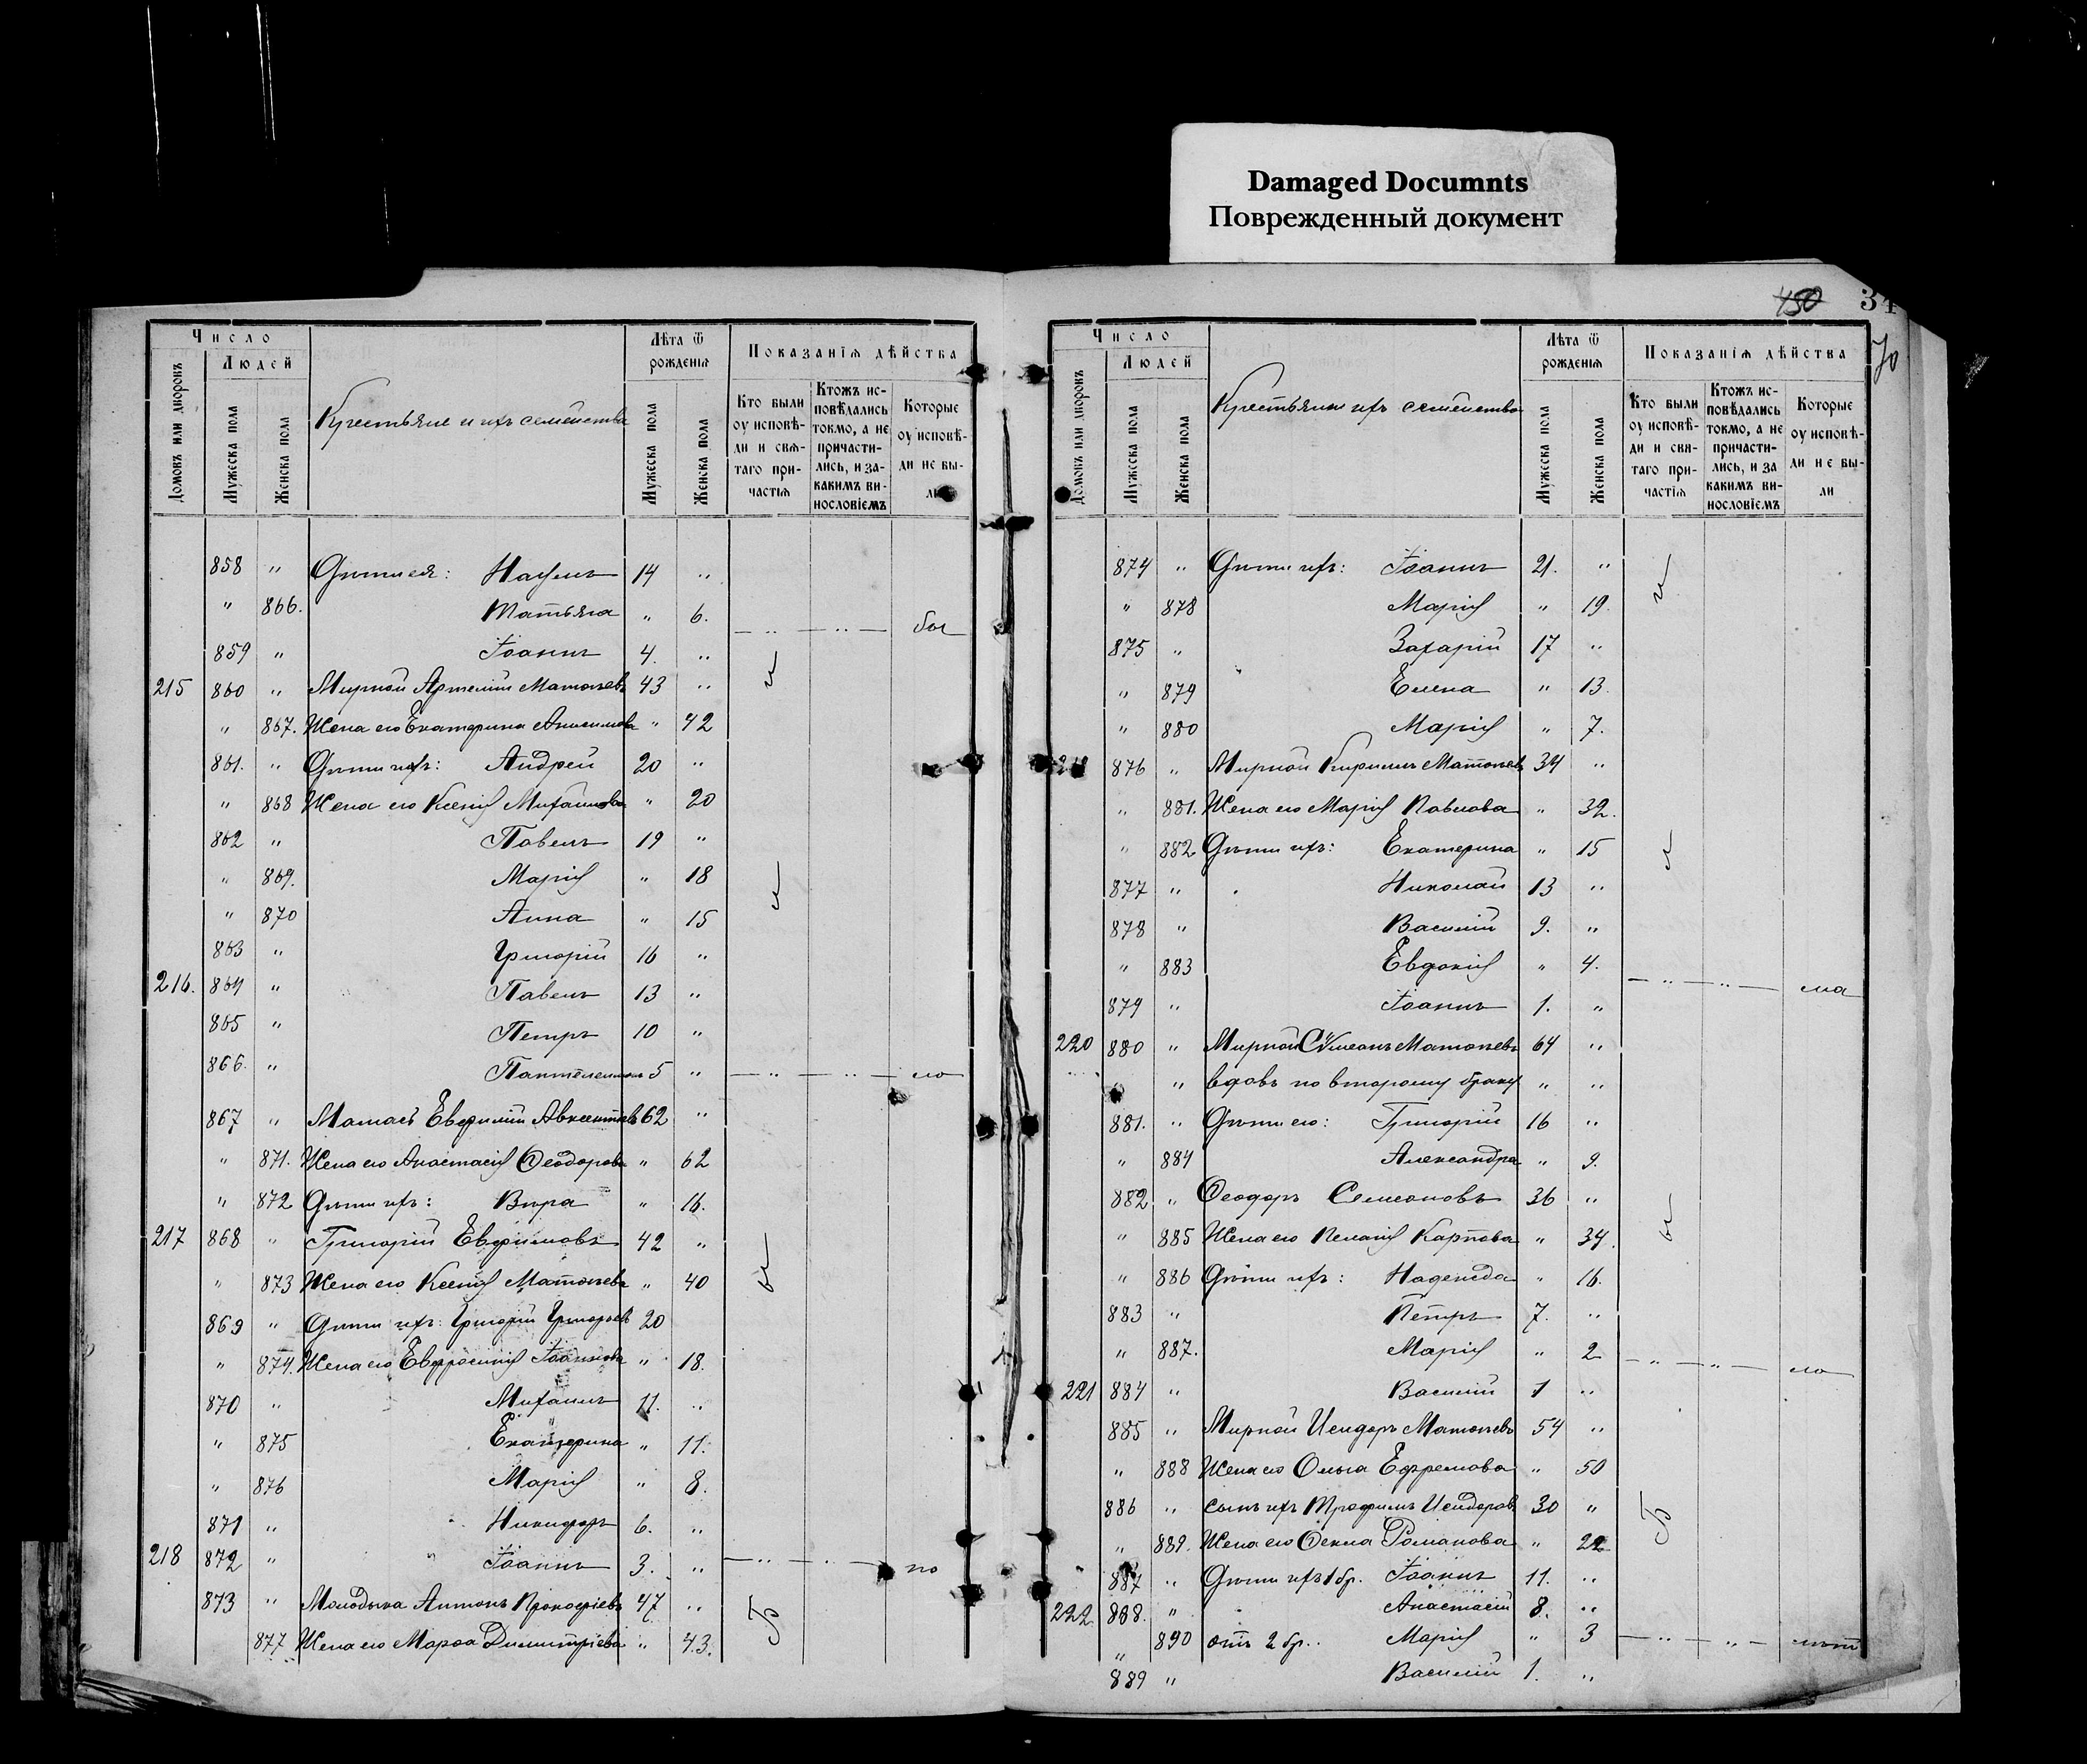 Damaged Documnts
Поврежденный документ
450
34
70
Число
Людей
Домовъ или дворовъ
Мужеска пола
Женска пола
Крестьяне и ихъ семейства
Лѣта ѿ рожденія
Мужеска пола
Женска пола
Показанія дѣйства
Кто были оу исповѣ-ди и свѧ-таго при-частіѧ
Ктожъ ис-повѣдались токмо, а не причасти-лись, и за-какимъ ви-нословіемъ
Которые оу исповѣ-ди не бы-ли
858 " Дѣти ея: Наумъ 14 "
" 866. Татьяна " 6. — " — " — бы
859 " Іоаннъ 4. "
215 860 " Мирной Артемій Матѳѣевъ 43 " и
" 867. Жена его Екатерина Анисимова " 42
861. " Дѣти ихъ: Андрей 20 "
" 868 Жена его Ксенія Михаилова " 20
862 " Павелъ 19 "
" 869. Марія " 18 и
" 870 Анна " 15
863 " Григорій 16 "
216. 864 " Павелъ 13 "
865 " Петръ 10 "
866. " Пантелеимонъ 5 " — " — " — ло
867 " Мамасъ Евфимій Авксентіевъ 62 "
" 871. Жена его Анастасія Ѳеодорова " 62
" 872 Дѣти ихъ: Вѣра " 16.
217 868 " Григорій Евфимовъ 42 "
" 873 Жена его Ксенія Матѳѣева " 40 ы
869 " Дѣти ихъ: Григорій Григорьевъ 20
" 874. Жена его Евфросинія Іоаннова " 18.
870 " Михаилъ 11. "
" 875 Екатерина " 11.
" 876 Марія " 8.
871 " Никифоръ 6. "
218 872 " Іоаннъ 3. " — " — " — по
873 " Молодыка Антонъ Прокофіевъ 47 " Б
877 Жена его Марѳа Димитріева " 43.
Число
Людей
Домовъ или дворовъ
Мужеска пола
Женска пола
Крестьяне и ихъ семейства
Лѣта ѿ рожденія
Мужеска пола
Женска пола
Показанія дѣйства
Кто были оу исповѣ-ди и свѧ-таго при-частіѧ
Ктожъ ис-повѣдались токмо, а не причасти-лись, и за какимъ ви-нословіемъ
Которые оу исповѣ-ди не бы-ли
874 " Дѣти ихъ: Іоаннъ 21. " и
" 878 Марія " 19.
875 " Захарій 17 "
" 879 Елена " 13.
" 880 Марія " 7.
876 " Мирной Кириллъ Матѳѣевъ 34 "
" 881. Жена его Марія Павлова " 32.
" 882 Дѣти ихъ: Екатерина " 15 и
877 " Николай 13 "
878 " Василій 9. "
" 883 Евдокія " 4. — " — " — ла
879 " Іоаннъ 1. "
220 880 " Мирной Сѵмеонъ Матѳѣевъ 64 "
" вдовъ по второму браку " "
881. " Дѣти его: Григорій 16 "
" 884 Александра " 9.
882 " Ѳеодоръ Семеоновъ 36 "
" 885 Жена его Пелагія Карпова " 34. ы
" 886 Дѣти ихъ: Надежда " 16.
883 " Петръ 7. "
" 887. Марія " 2 — " — " — ло
221 884 " Василій 1 "
885 " Мирной Исидоръ Матѳѣевъ 54 "
" 888 Жена его Ольга Ефремова " 50
886 " сынъ ихъ Трофимъ Исидоровъ 30 " Б
" 889. Жена его Ѳекла Романова " 22
887 " Дѣти ихъ 1 бр. Іоаннъ 11. "
222. 888. " Анастасій 8. "
" 890 отъ 2 бр. Марія " 3 — " — " — лѣт
889 " Василій 1. "